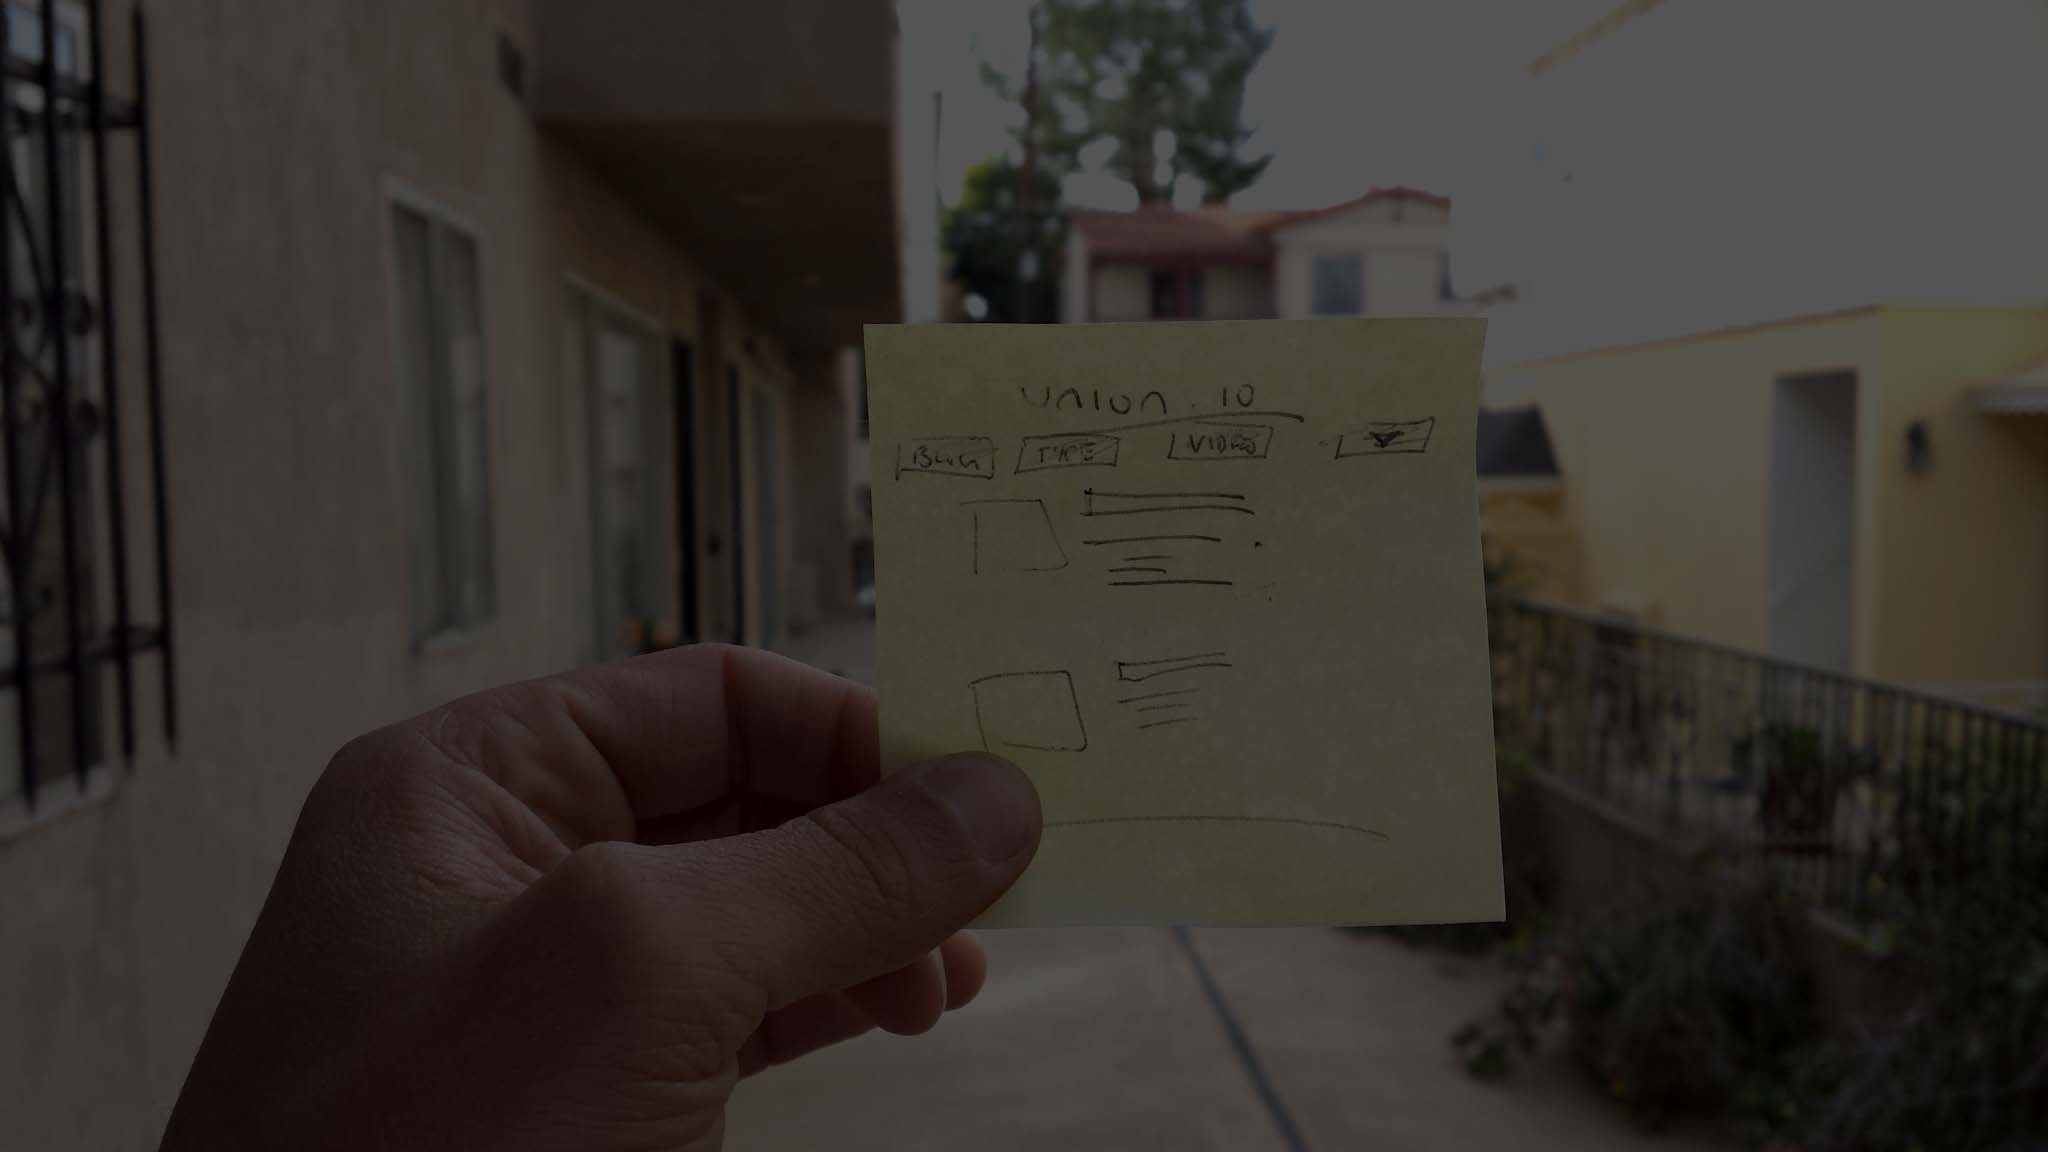 union.io
TYPE VIDEO